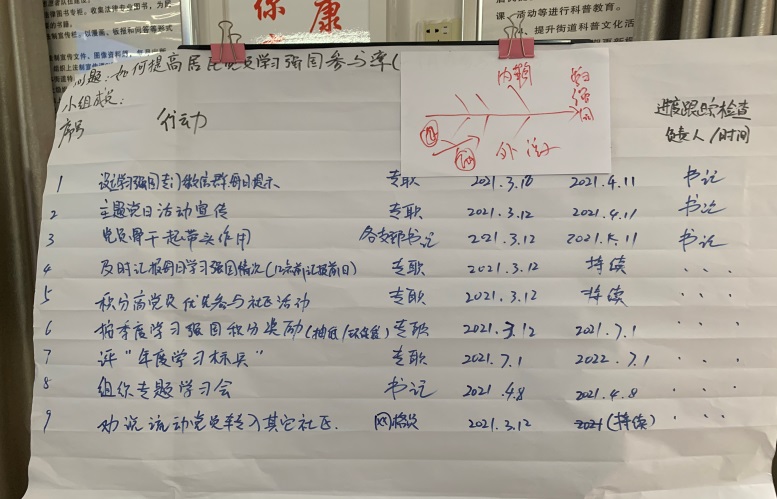 保 康
图书专柜，收集法律专业图书，为
宣传栏，以漫画、板报和问答等形式
宣传文件、图像资料
居民
课、活动等进行科普教育。
4、提升街道科普文化活
问题：如何提高居民党员学习强国参与率(
小组成员：
序号 行动 进度跟踪检查
负责人/时间
内部
学习强国
外部
1 设学习强国专门微信群每日提示 专职 2021.3.10 2021.4.11 书记
2 主题党日活动宣传 专职 2021.3.12 2021.4.11 书记
3 党员骨干起带头作用 各支部书记 2021.3.12 2021.4.11 书记
4 及时汇报每日学习强国情况(12点前汇报前日) 专职 2021.3.12 持续 ...
5 积分高党员优先参与社区活动 专职 2021.3.12 持续 ...
6 按季度学习强国积分奖励 专职 2021.3.12 2021.7.1 ...
7 评“年度学习标兵” 专职 2021.7.1 2022.7.1 ...
8 组织专题学习会 书记 2021.4.8 2021.4.8 ...
9 劝说流动党员转入其它社区. 网格员 2021.3.12 2021(持续) ...